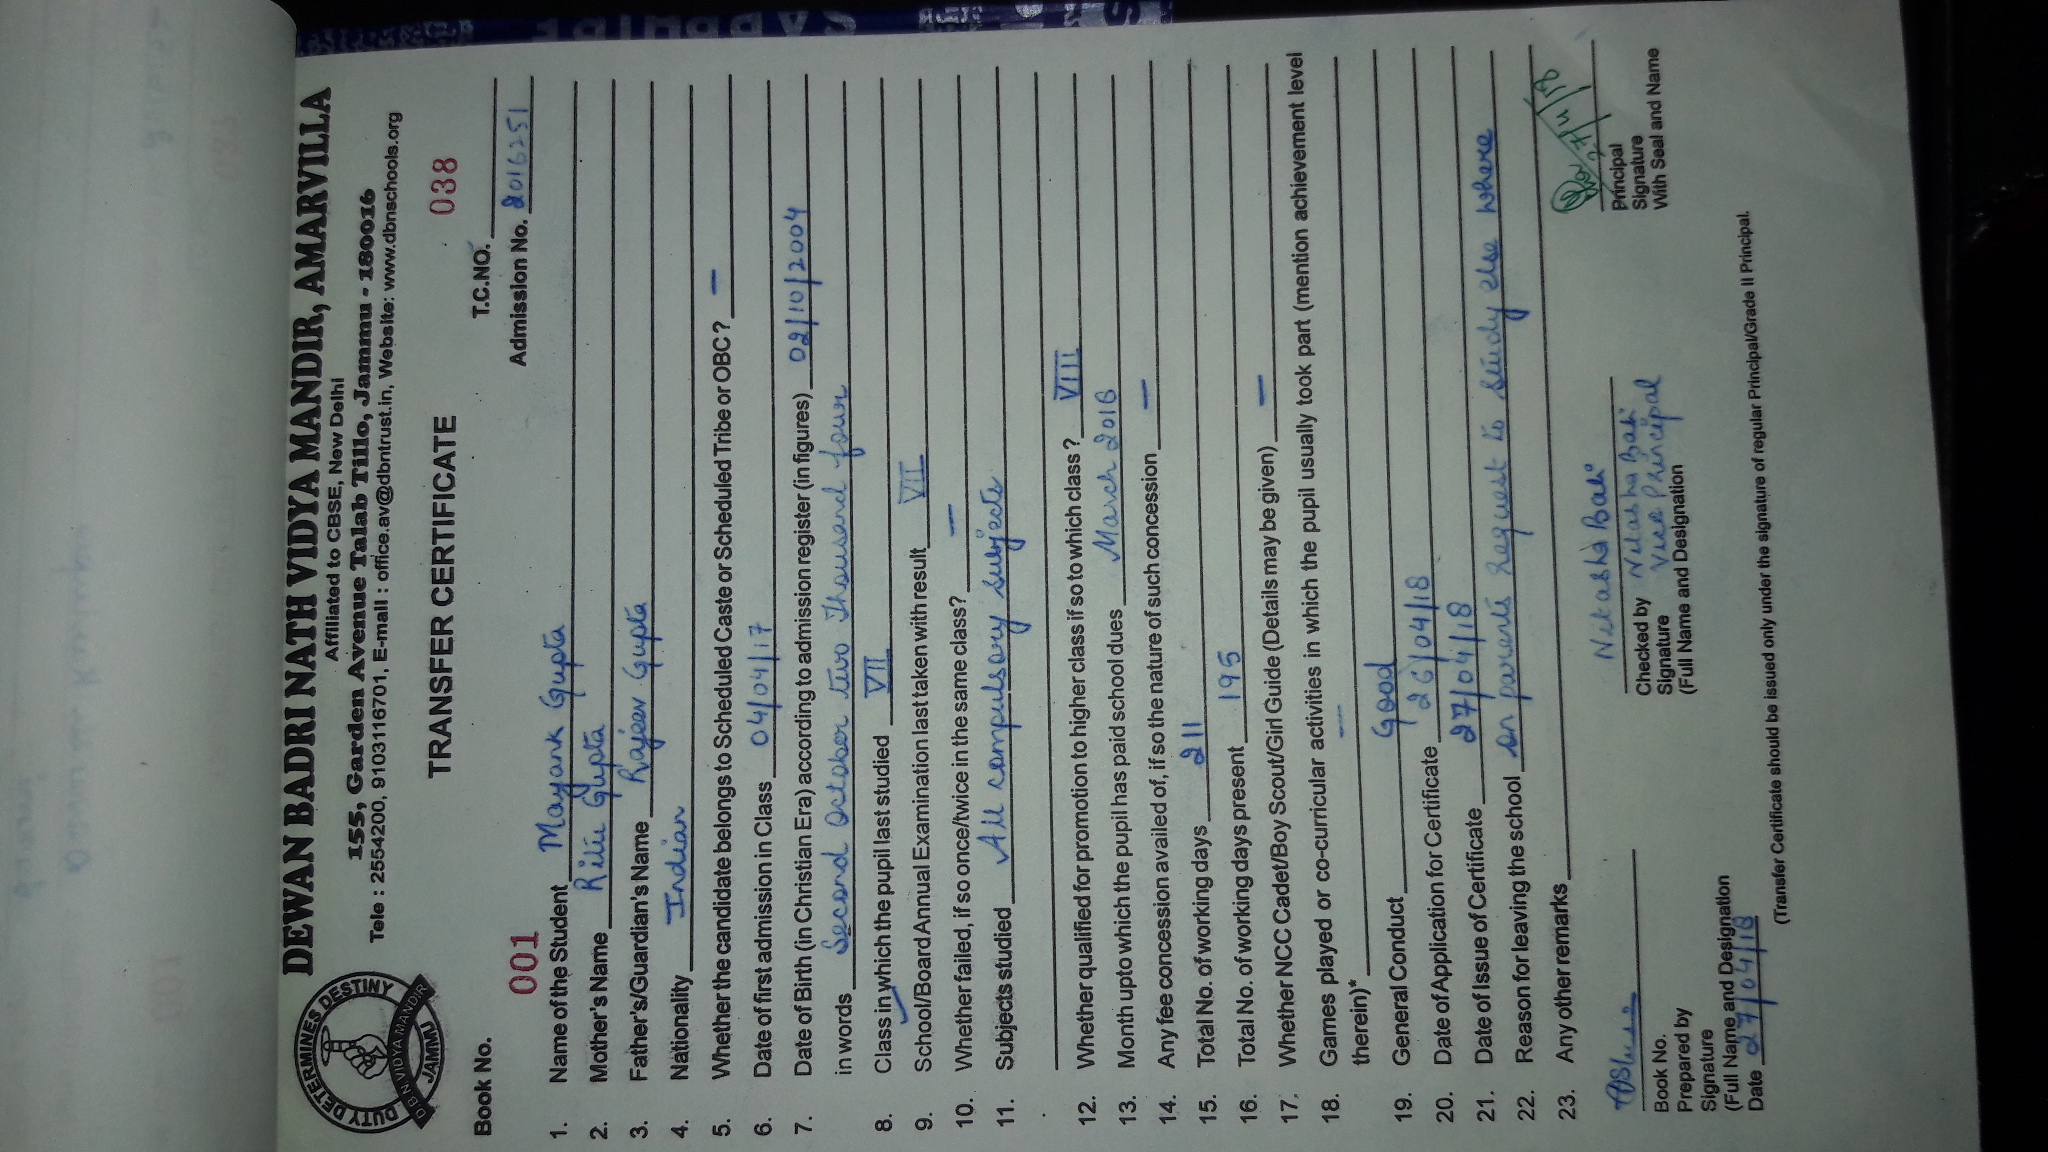 DEWAN BADRI NATH VIDYA MANDIR, AMARVILLA
Affiliated to CBSE, New Delhi
155, Garden Avenue Talab Tillo, Jammu - 180016
Tele : 2554200, 9103116701, E-mail : office.av@dbntrust.in, Website: www.dbnschools.org
DUTY DETERMINES DESTINY
DBN VIDYA MANDIR
JAMMU
TRANSFER CERTIFICATE
038
Book No. T.C.NO.
001 Admission No. 2016251
1. Name of the Student Mayank Gupta
2. Mother's Name Ritu Gupta
3. Father's/Guardian's Name Rajeev Gupta
4. Nationality Indian
5. Whether the candidate belongs to Scheduled Caste or Scheduled Tribe or OBC? —
6. Date of first admission in Class 04/04/17
7. Date of Birth (in Christian Era) according to admission register (in figures) 02/10/2004
in words Second October two Thousand four
8. Class in which the pupil last studied VII
9. School/Board Annual Examination last taken with result VII
10. Whether failed, if so once/twice in the same class? —
11. Subjects studied All compulsory subjects
12. Whether qualified for promotion to higher class if so to which class? VIII
13. Month upto which the pupil has paid school dues March 2018
14. Any fee concession availed of, if so the nature of such concession —
15. Total No. of working days 211
16. Total No. of working days present 195
17. Whether NCC Cadet/Boy Scout/Girl Guide (Details may be given) —
18. Games played or co-curricular activities in which the pupil usually took part (mention achievement level
therein)* —
19. General Conduct Good
20. Date of Application for Certificate 26/04/18
21. Date of Issue of Certificate 27/04/18
22. Reason for leaving the school On parents request to study else where
23. Any other remarks
Book No.
Prepared by
Signature
(Full Name and Designation
Date 27/04/18
Checked by
Signature Vice Principal
(Full Name and Designation
Principal
Signature
With Seal and Name
(Transfer Certificate should be issued only under the signature of regular Principal/Grade II Principal.